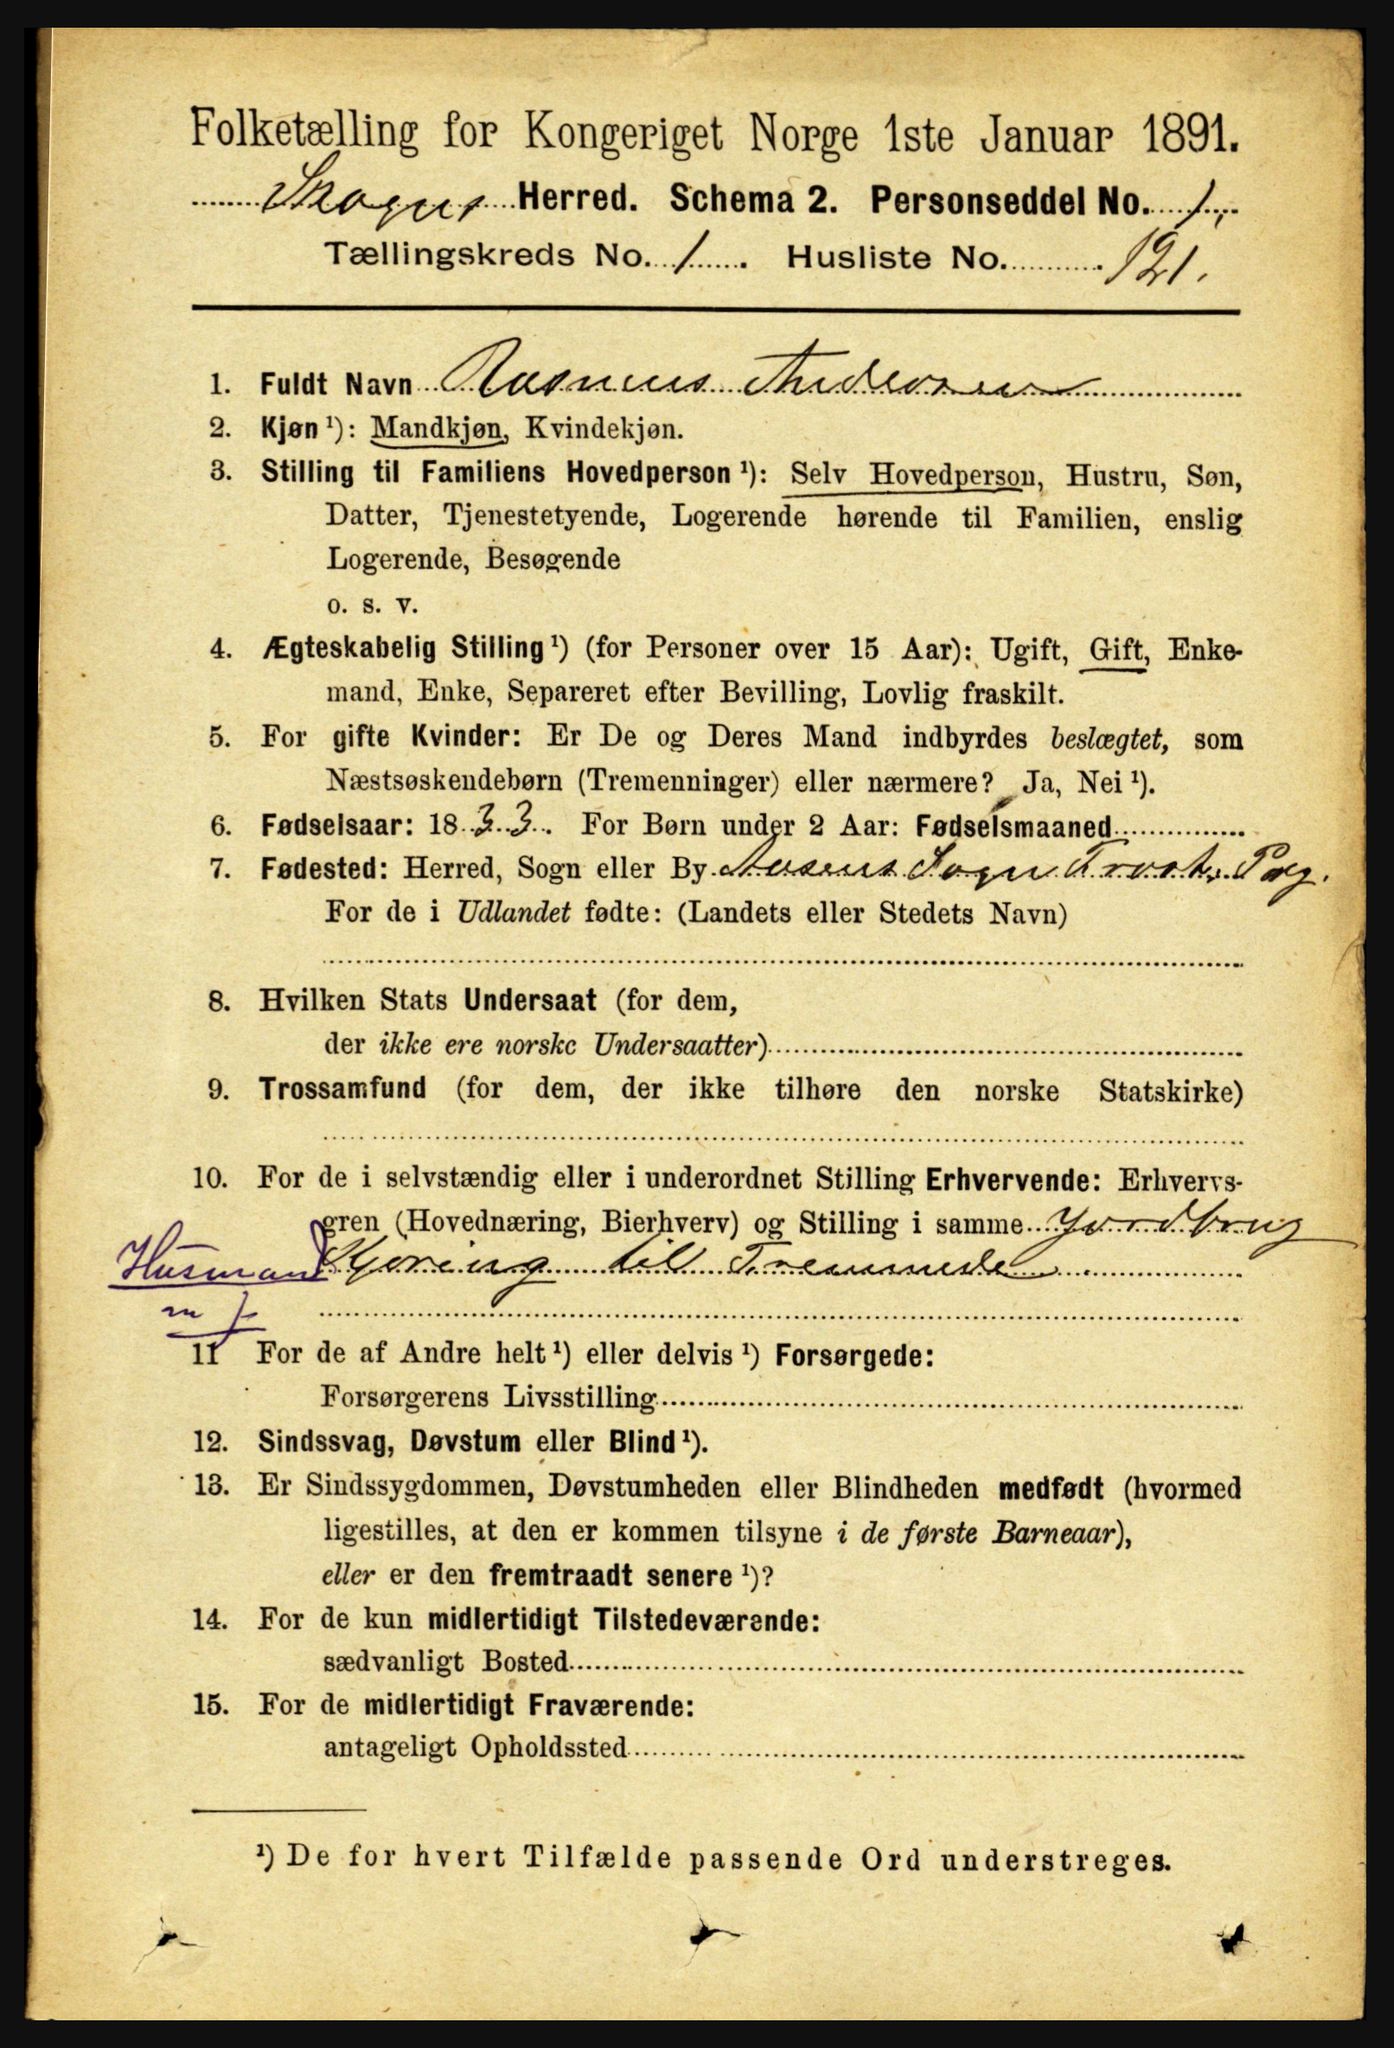 Folketælling for Kongeriget Norge 1ste Januar 1891.
Skogns Herred. Schema 2. Personseddel No. 1,
Tællingskreds No. 1. Husliste No. 121.
1. Fuldt Navn Rasmus Andersen
2. Kjøn ¹): Mandkjøn, Kvindekjøn.
3. Stilling til Familiens Hovedperson ¹): Selv Hovedperson, Hustru, Søn,
Datter, Tjenestetyende, Logerende hørende til Familien, enslig
Logerende, Besøgende
o. s. v.
4. Ægteskabelig Stilling ¹) (for Personer over 15 Aar): Ugift, Gift, Enke-
mand, Enke, Separeret efter Bevilling, Lovlig fraskilt.
5. For gifte Kvinder: Er De og Deres Mand indbyrdes beslægtet, som
Næstsøskendebørn (Tremenninger) eller nærmere? Ja, Nei ¹).
6. Fødselsaar: 1833. For Børn under 2 Aar: Fødselsmaaned
7. Fødested: Herred, Sogn eller By Aasens Sogn Frost. Præg.
For de i Udlandet fødte: (Landets eller Stedets Navn)
8. Hvilken Stats Undersaat (for dem,
der ikke ere norske Undersaatter)
9. Trossamfund (for dem, der ikke tilhøre den norske Statskirke)
10. For de i selvstændig eller i underordnet Stilling Erhvervende: Erhvervs-
gren (Hovednæring, Bierhverv) og Stilling i samme Jordbrug
Husmand Kjøring til Fremmede
m j
11 For de af Andre helt ¹) eller delvis ¹) Forsørgede:
Forsørgerens Livsstilling
12. Sindssvag, Døvstum eller Blind ¹).
13. Er Sindssygdommen, Døvstumheden eller Blindheden medfødt (hvormed
ligestilles, at den er kommen tilsyne i de første Barneaar),
eller er den fremtraadt senere ¹)?
14. For de kun midlertidigt Tilstedeværende:
sædvanligt Bosted
15. For de midlertidigt Fraværende:
antageligt Opholdssted
¹) De for hvert Tilfælde passende Ord understreges.